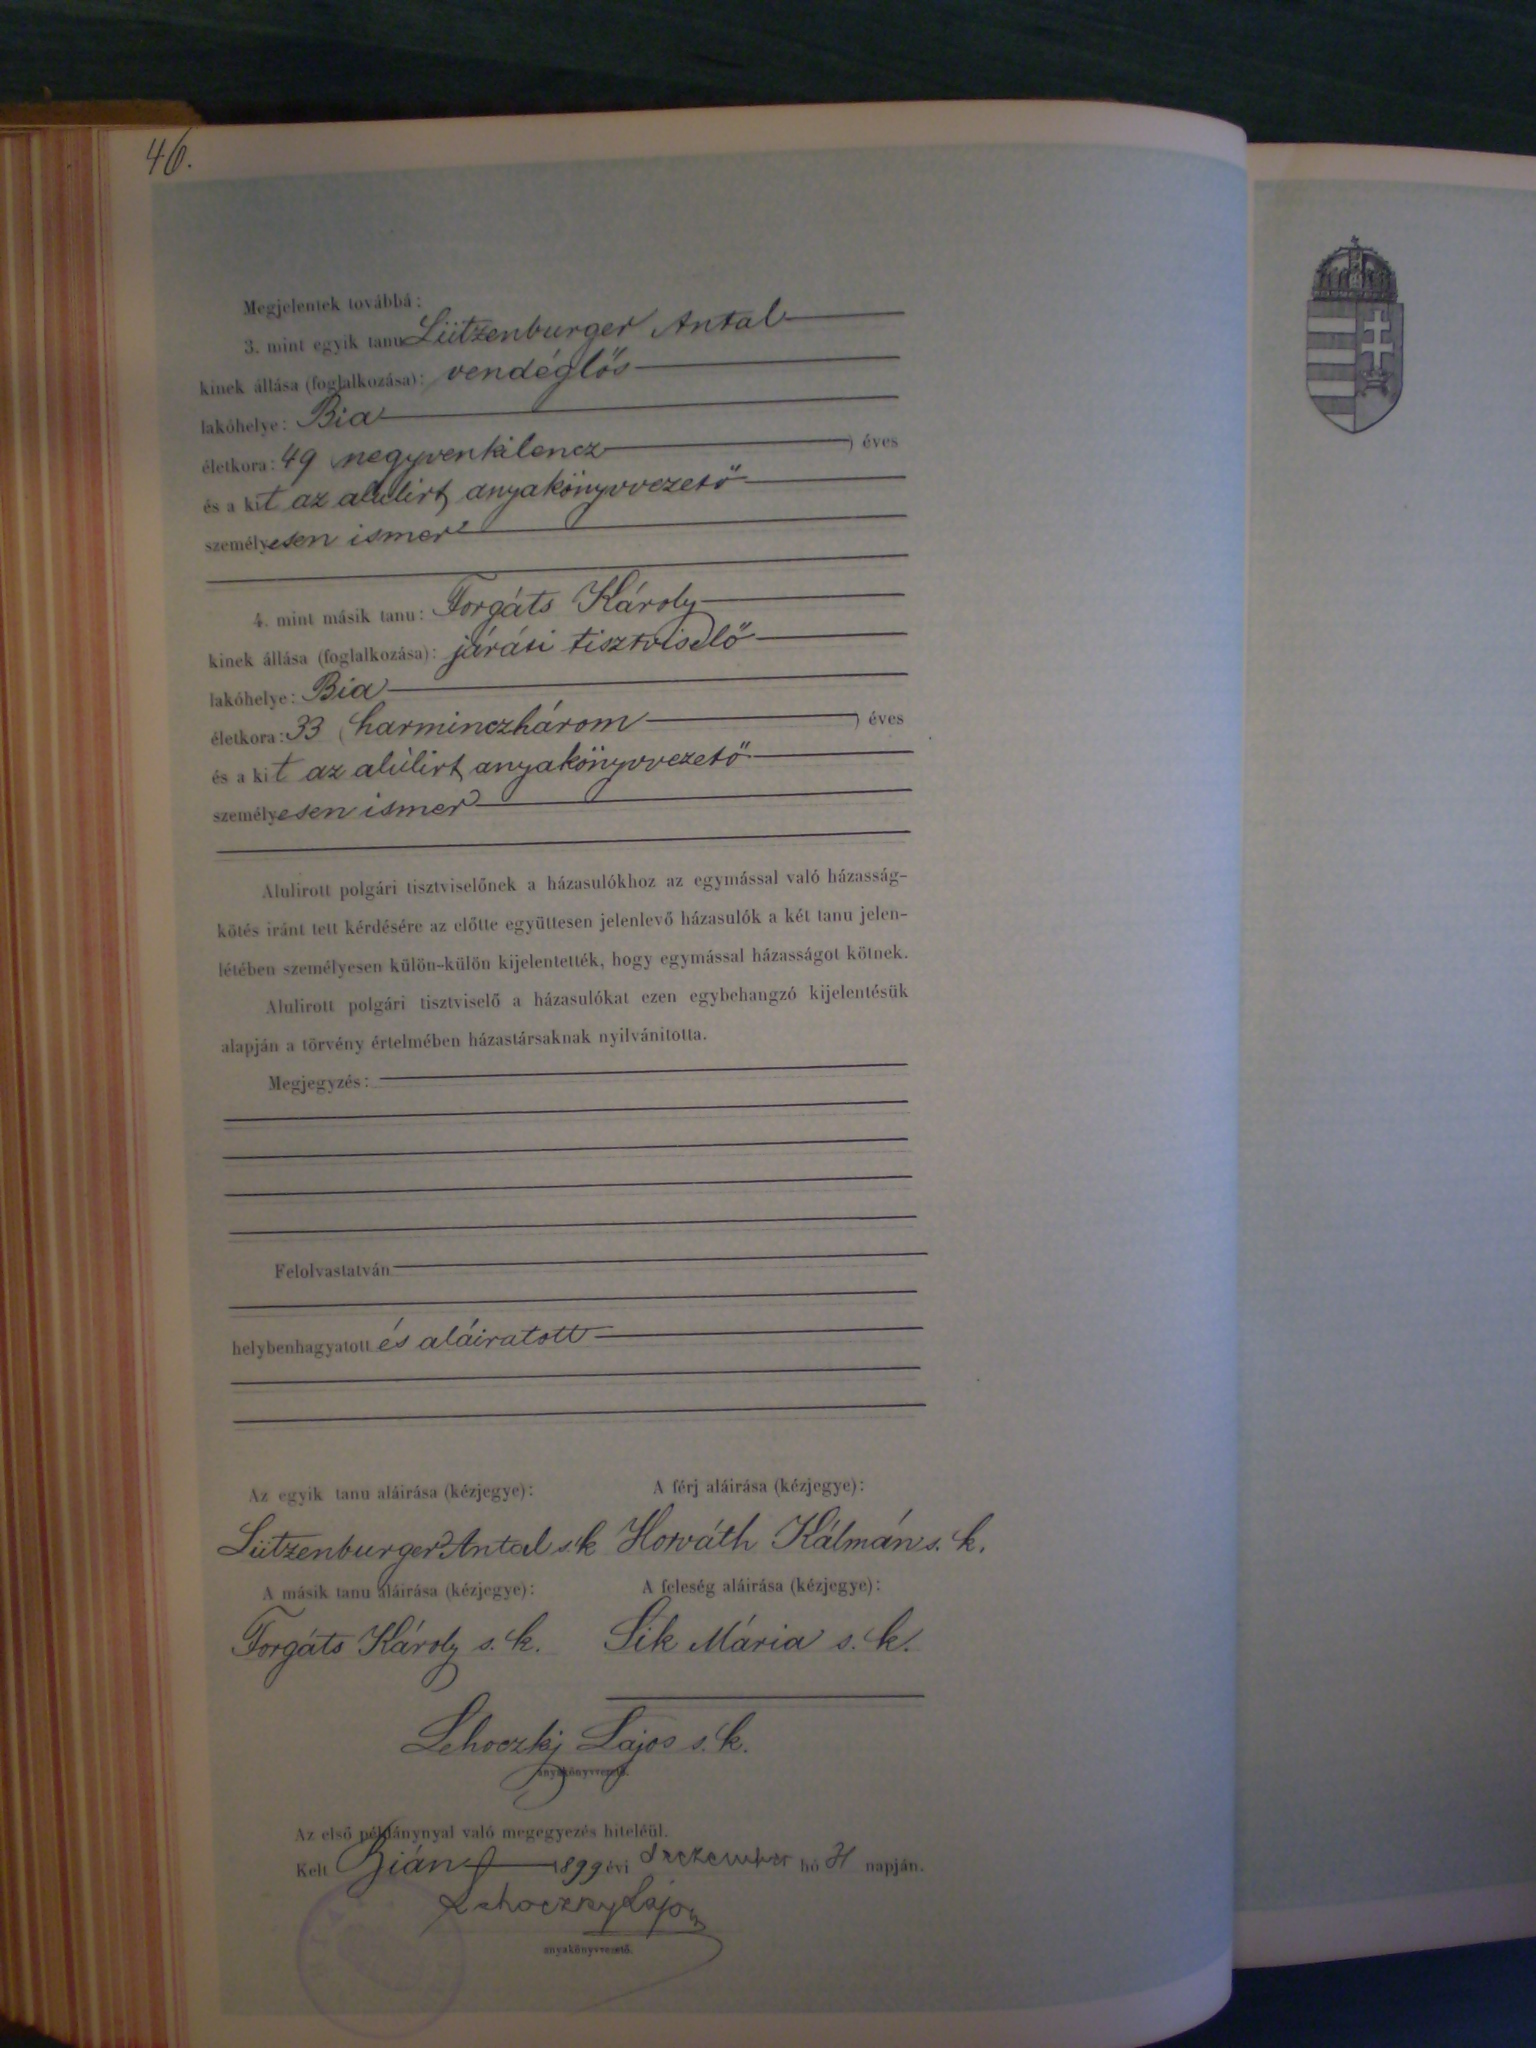 46.
Megjelentek továbbá:
3. mint egyik tanu Lützenburger Antal
kinek állása (foglalkozása): vendéglős
lakóhelye: Bia
életkora: 49 negyvenkilencz ) éves
és a kit az alulirt anyakönyvvezető
személyesen ismer
4. mint másik tanu: Forgáts Károly
kinek állása (foglalkozása): járási tisztviselő
lakóhelye: Bia
életkora: 33 (harminczhárom ) éves
és a kit az alúlirt anyakönyvvezető
személyesen ismer
Alulirott polgári tisztviselőnek a házasulókhoz az egymással való házasság-
kötés iránt tett kérdésére az előtte együttesen jelenlevő házasulók a két tanu jelen-
létében személyesen külön-külön kijelentették, hogy egymással házasságot kötnek.
Alulirott polgári tisztviselő a házasulókat ezen egybehangzó kijelentésük
alapján a törvény értelmében házastársaknak nyilvánitotta.
Megjegyzés:
Felolvastatván
helybenhagyatott és aláiratott
Az egyik tanu aláirása (kézjegye): A férj aláirása (kézjegye):
Lützenburger Antal s. k. Horváth Kálmán s. k.
A másik tanu aláirása (kézjegye): A feleség aláirása (kézjegye):
Forgáts Károly s. k. Sik Mária s. k.
Lehoczky Lajos s. k.
anyakönyvvezető.
Az első példánynyal való megegyezés hiteléül.
Kelt Bián 1899 évi deczember hó 31 napján.
Lehoczky Lajos
anyakönyvvezető.